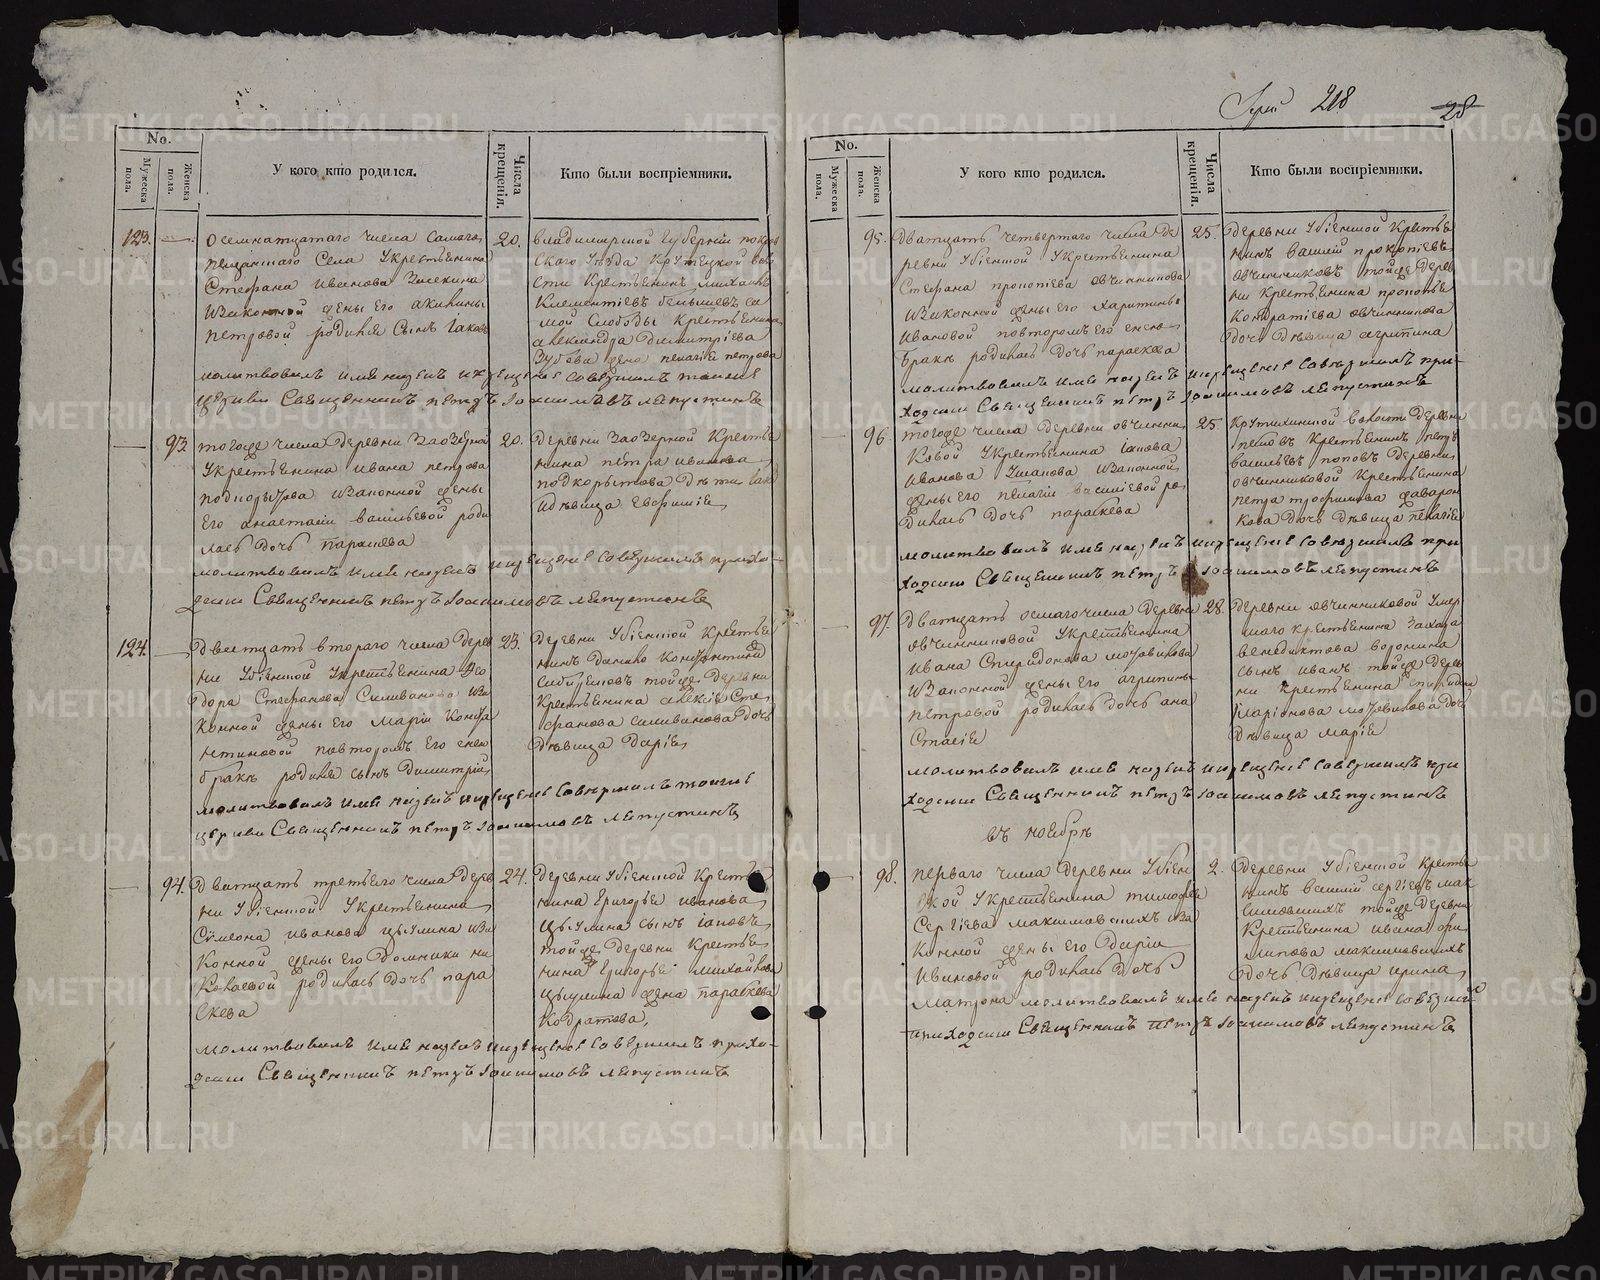 218
28
No.
Мужеска пола.
Женска пола.
У кого кто родился.
Числа крещенія.
Кто были воспріемники.
123.
осемнатцатаго числа самаго
села укрестьянина
Стефана иванова
Взаконной жены его акилины
петровой родился сынъ Іаковъ
20.
владимирской губерніи покров
скаго уѣзда воло
сти крестьянинъ михаилъ
Клементіевъ са
мой слободы крестьянина
александра димитріева
Зубова жена пелагіе петрова
молитвовалъ имя нарекъ икрещеніе совершилъ тояже
церкви Священникъ петръ Іоакимовъ ляпустинъ
93
тогоже числа деревни Заозерной
укрестьянина ивана петрова
подкорытова изаконной жены
Его анастасіи васильевой роди
лась дочь параскева
20.
деревни Заозерной крестья
нина петра иванова
подкорытова дѣти Іаков
идѣвица Евфиміе
молитвовалъ имя нарекъ икрещеніе совершилъ прихо-
дскій Священникъ петръ Іоакимовъ ляпустинъ
124.
Двестцать втораго числа дерев
ни Убіенной укрестьянина Фео
дора Стефанова Селиванова Иза
конной жены его маріи Конста
нтиновой повторомъ его ихъ
бракѣ родился сынъ Димитрій
23.
деревни Убіенной крестья
нинъ данило Константинов
тойже деревни
Крестьянина алексія Сте
фанова селиванова дочь
дѣвица даріе
молитвовалъ имя нарекъ икрещеніе совершилъ тояже
церкви Священникъ петръ Іоакимовъ ляпустинъ
94.
Дватцать третьего числа дерев
ни Убіенной укрестьянина
Сѵмеона иванова цыулина иза
конной жены его домники ни
колаевой родилась дочь пара
скева
24.
деревни Убіенной крестья
нина григорье иванова
цыулина сынъ іаковъ
тойже деревни крестья
нина григорье михайлова
цыулина жена параскева
Кодратова.
молитвовалъ имя нарекъ икрещеніе совершилъ прихо-
дскій Священникъ петръ Іоакимовъ ляпустинъ
No.
Мужеска пола.
Женска пола.
У кого кто родился.
Числа крещенія.
Кто были воспріемники.
95.
дватцать четвертаго числа де
ревни Убіенной укрестьянина
Стефана прокопіева овчинникова
Изаконной жены его харитины
Ивановой повторомъ его ихъ
бракѣ родилась дочь параскева
25.
деревни Убіенной крестья
нинъ василій прокопіевъ
овчинниковъ тойже дерев
ни крестьянина прокопіе
кондратіева овчинникова
дочь дѣвица агрипина
молитвовалъ имя нарекъ икрещеніе совершилъ при-
ходскій Священникъ петръ Іоакимовъ ляпустинъ
96
тогоже числа деревни овчинни
ковой укрестьянина іакова
иванова ушакова изаконной
жены его пелагіи васильевой ро
дилась дочь параскева
25
Крутихинской волости деревни
поповъ крестьянинъ петръ
васильевъ поповъ деревни
овчинниковой крестьянина
петра трофимова
дочь дѣвица пелагіе
молитвовалъ имя нарекъ икрещеніе совершилъ при
ходскій Священникъ петръ Іоакимовъ ляпустинъ
97.
Дватцать осмаго числа деревни
овчинниковой укрестьянина
ивана Спиридонова
изаконной жены его агрипины
петровой родилась дочь ана
стасіе
28.
деревни овчинниковой умер
шаго крестьянина Захара
венедиктова воронина
сынъ иванъ тойже дерев
ни крестьянина спиридона
Іларіонова дочь
дѣвица маріе
молитвовалъ имя нарекъ икрещеніе совершилъ при
ходскій Священникъ петръ Іоакимовъ ляпустинъ
въ ноябрѣ
98.
перваго числа деревни Убіен
ской укрестьянина тимофея
Сергіева максимовскихъ иза
конной жены его даріи
ивановой родилась дочь
матрона молитвовалъ имя нарекъ икрещеніе совершил
приходскій Священникъ петръ Іоакимовъ ляпустинъ
2.
деревни Убіенной крестья
нинъ василій сергіевъ мак
симовскихъ тойже деревни
крестьянина ивана фи
липова максимовскихъ
дочь дѣвица ирина